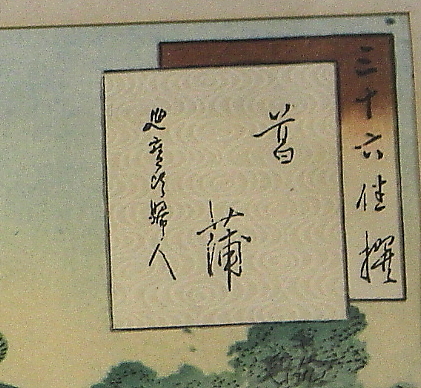 三十六佳撰
菖蒲
延寶頃婦人